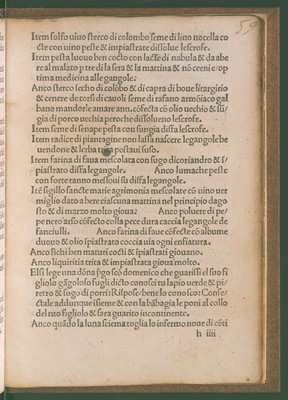 Item solfo uiuo sterco di colombo seme di lino nocella co
cte con uino peste & impiastrate dissolue lescrofe.
Item pesta luouo ben cocto con lacte di nabula & da abe
re al malato p tre di la sera & la mattina & nō ceni e op
tima medicina alle gangole.
Anco sterco secho di colobo & di capra di boue litargirio
& cenere de torsi di cauoli seme di rafano armōiaco gal
bano mandorle amare ann. cōfecta cō olio uechio & sū/
gia di porco uechia peroche dissolueno lescrofe.
Item seme di senape pesta cū sungia dissa lescrofe.
Item radice di piantagine non lassa nascere legangole be
uendone & lerba trita postaui suso.
Item farina di faua mescolata con sugo di coriandro & ī/
piastrato dissa legangole. Anco lumache peste
con forte ranno messoui su dissa legangole.
Itē sigillo sancte marie agrimonia mescolate cō uino uer
miglio dato a bere ciascuna mattina nel principio dago
sto & di marzo molto gioua: Anco poluere di pe/
pe nero arso cōfecto colla pece dura caccia legangole de
fanciulli. Anco farina di faue cōfecte cō albume
duouo & olio īpiastrato coccia uia ogni enfiatura.
Anco fichi ben maturi cocti & īpiastrati giouano.
Anco liquiritia trita & impiastrata gioua molto.
Elsi lege una dōna ꝑgo scō domenico che guarissi el suo fi
gliolo gāgoloso fugli dicto conosci tu lapio uerde & pi/
retro & sugo di porri: Rispose/bene lo conosco: Confe/
ctale addunque īsieme & con la bābagia le poni al collo
del tuo figliolo & sara guarito incontinente.
Anco quādo la luna sciema toglia lo infermo noue di cōti
h iiii